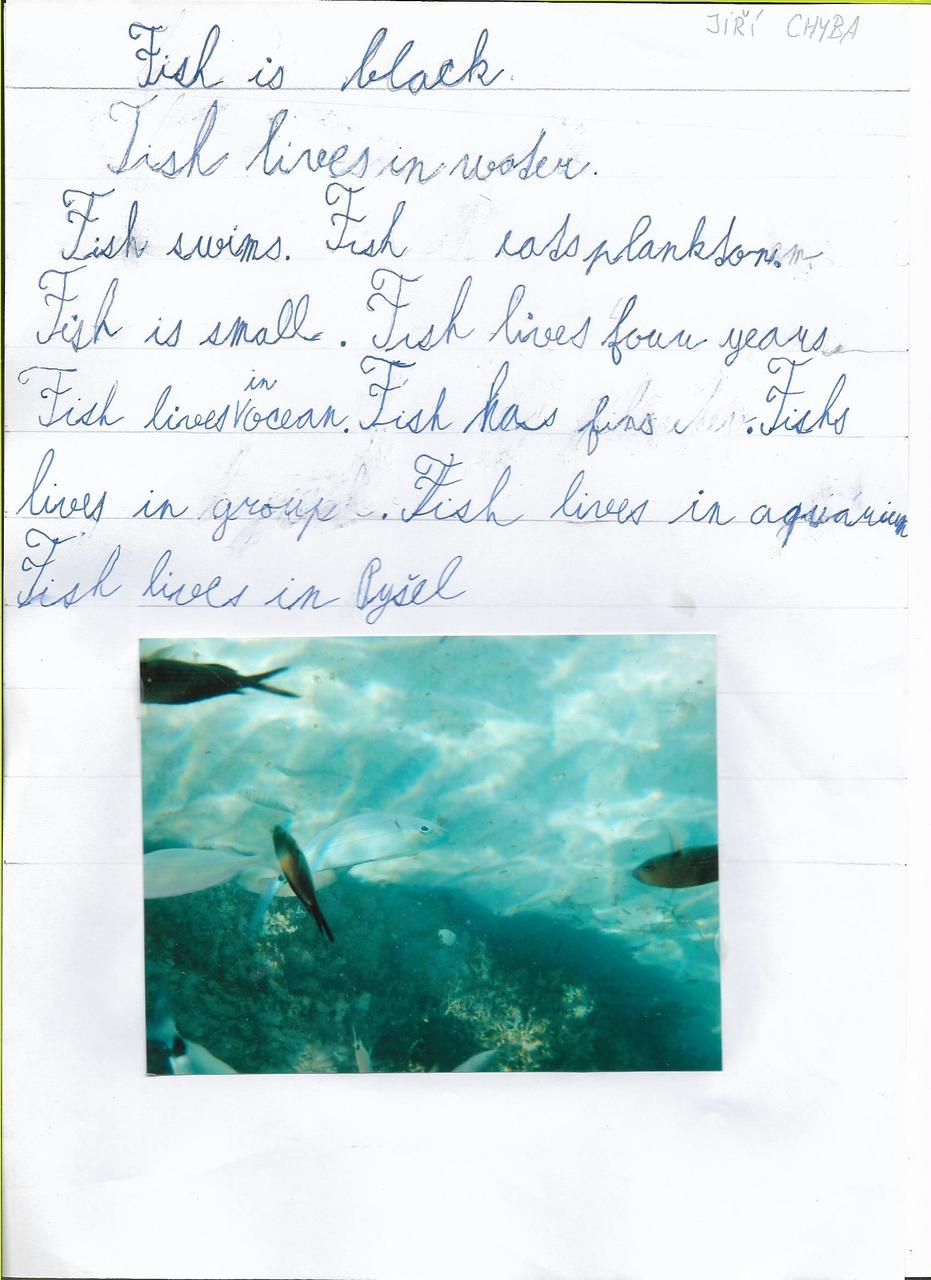 JIŘÍ CHYBA
Fish is black.
Fish lives in water.
Fish swims. Fish eats plankton.
Fish is small. Fish lives four years
Fish lives in ocean. Fish has fins. Fishs
lives in group. Fish lives in aquárium
Fish lives in Pyšel